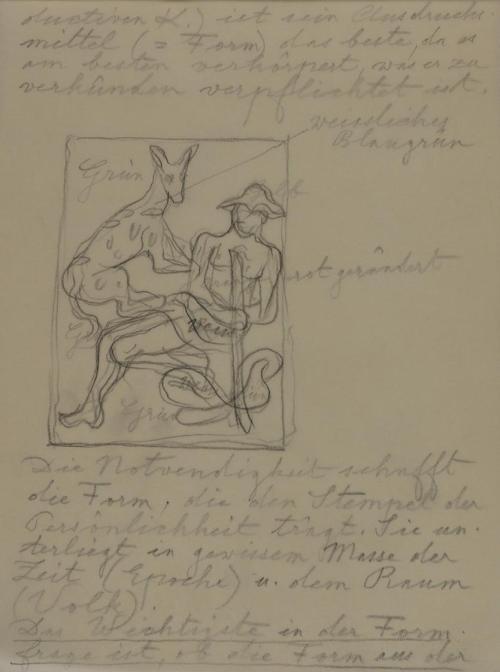 duktiven K.) ist sein Ausdrucks-
mittel (= Form) das beste, da es
am besten verkörpert, was er zu
verkünden verpflichtet ist.
weissliches
Blaugrün
Grün
Gelb
rot gerändert
Weiss
Grün
Die Notvendigkeit schafft
die Form, die den Stempel der
Persönlichkeit trägt. Sie un-
terliegt in gewissem Masse der
Zeit (Epoche) u. dem Raum
(Volk).
Das Wichtigste in der Form-
frage ist, ob die Form aus der